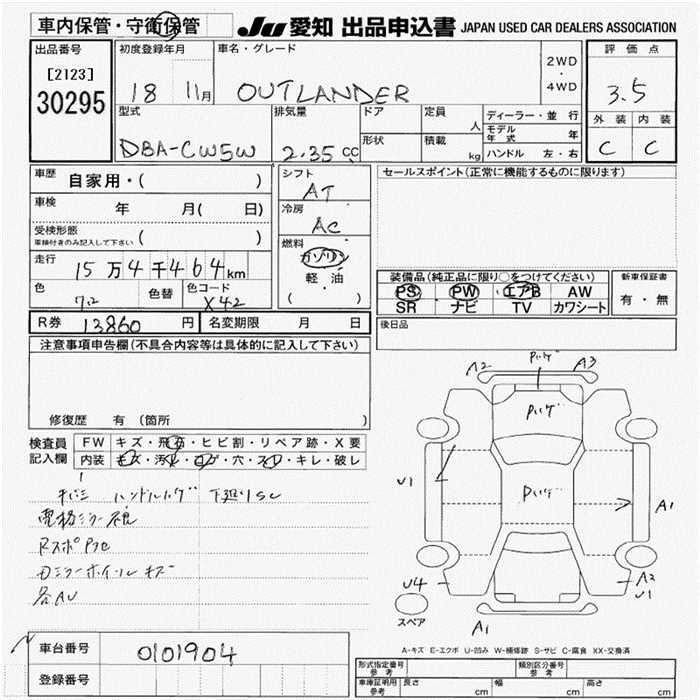 車内保管・守衛保管 JU 愛知 出品申込書 JAPAN USED CAR DEALERS ASSOCIATION
出品番号 初度登録年月 車名・グレード 2WD・4WD 評価点
[2123] 30295 18 11月 OUTLANDER 3.5
型式 排気量 ドア 定員 人 ディーラー・並行 外装 内装
DBA-CW5W 2.35cc 形状 積載 kg モデル年式 年 C C
ハンドル 左・右
車歴 自家用・( ) シフト AT セールスポイント(正常に機能するものに限ります)
車検 年 月( 日) 冷房 AC
受検形態 車検付きのみ記入して下さい ( ) 燃料 ガソリン
走行 15万4千464km 軽・油 装備品(純正品に限り○をつけてください) 新車保証書
色 色替 色コード X42 ( ) PS PW エアB AW 有・無
SR ナビ TV カワシート
R券 13860円 名変期限 月 日 後日品
注意事項申告欄(不具合内容等は具体的に記入して下さい)
修復歴 有 (箇所 )
検査員記入欄 FW キズ・飛石・ヒビ割・リペア跡・X要
内装 キズ・汚れ・コゲ・穴・スレ・キレ・破レ
A2 A3
U1 A1
U4 A2 U1
スペア A1
A-キズ E-エクボ U-凹み W-補修跡 S-サビ C-腐食 XX-交換済
車台番号 0101904
登録番号
形式指定番号 参考 類別区分番号 参考
車庫証明用 参考 長さ cm 幅 cm 高さ cm